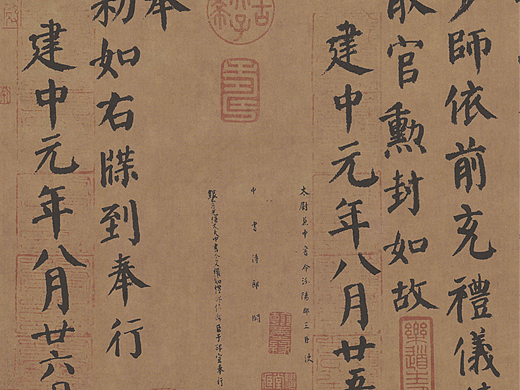 少師依前充禮儀
散官勳封如故
建中元年八月廿五
太尉兼中書令汾陽郡王
中書侍郎闕
臣于邵宣奉行
奉
敕如右牒到奉行
建中元年八月廿六日